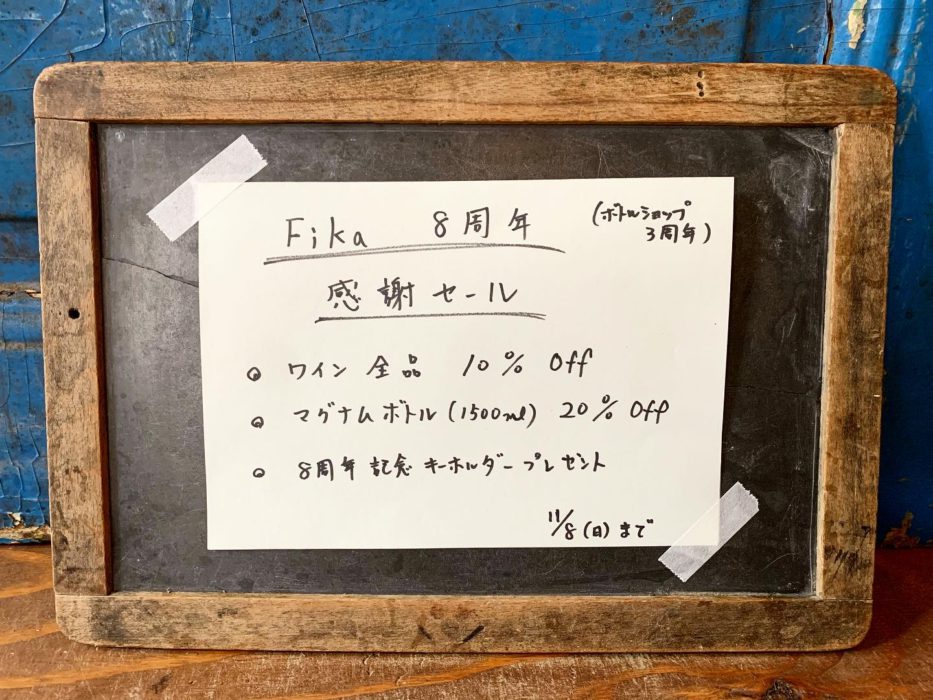 Fika 8周年
(ボトルショップ
3周年)
感謝セール
• ワイン全品 10% Off
• マグナムボトル(1500ml) 20% Off
• 8周年記念キーホルダープレゼント
11/8(日)まで